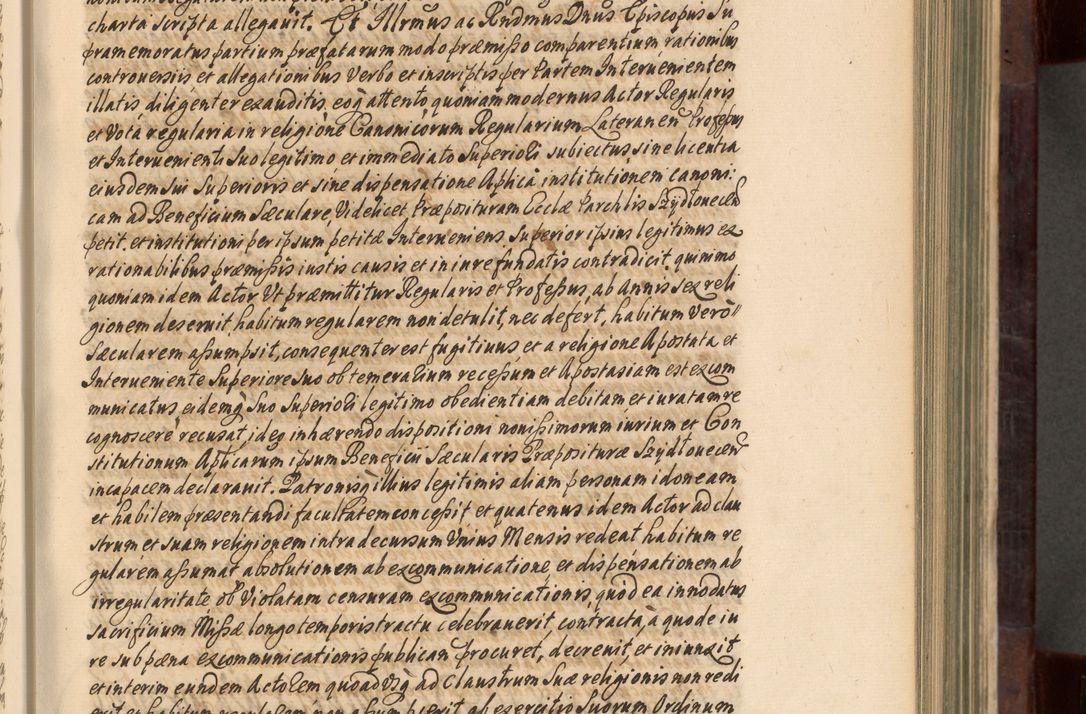 charta scripta allegavit. Et Illrmus ac Rndmus Dnus Episcopus Su
pramemoratus partium præfatarum modo præmisso comparentium rationibus
controversiis et allegationibus verbo et in scriptis per Partem Intervenientem
illatis, diligenter exauditis, eoq attento quoniam modernus Actor Regularis
et Vota regularia in religione Canonicorum Regularium Lateranen Professus
et Intervenienti Suo legitimo et immediato Superiori subiectus, sine licentia
eiusdem sui Superioris et sine dispensatione Aplica institutionem canoni:
cam ad Beneficium Sæculare, Videlicet Præposituram Ecclæ Parchlis Szydlovecen
petit, et institutioni per ipsum petitæ Interveniens Superior ipsius legitimus ex
rationabilibus præmissis iustis causis et in iure fundatis contradicit, quinimo
quoniam idem Actor Vt præmittitur Regularis et Professus, ab Annis sex reli
gionem deseruit, habitum regularem non detulit, nec defert, habitum vero
sæcularem assumpsit, consequenter est fugitivus et a religione Apostata et
Interveniente Superiore suo ob temerarium recessum et Apostasiam est excom
municatus, eidemq Suo Superiori legitimo obedientiam debitam et iuratam re
cognoscere recusat, ideo inhærendo dispositioni novissimorum iurium et Con
stitutionum Aplicarum ipsum Beneficii Sæcularis Præpositurae Szydlovecen
incapacem declaravit. Patronisq illius legitimis aliam personam idoneam
et habilem præsentandi facultatem concessit et quatenus idem Actor ad clau
strum et suam religionem intra decursum Vnius Mensis redeat habitum re
gularem assumat absolutionem ab excommunicatione, et dispensationem ab
irregularitate ob Violatam censuram excommunicationis, quod ea innodatus
sacrificium Missæ longo temporis tractu celebraverit, contracta, à quo de iu
re sub pæna excommunicationis publicæ procuret, decrevit, et iniunxit
et interim eundem Actorem quoad Vsq ad Claustrum Suæ religionis non redi
erit et habitum regularem non assumpserit ab exercitio Suorum Ordinum